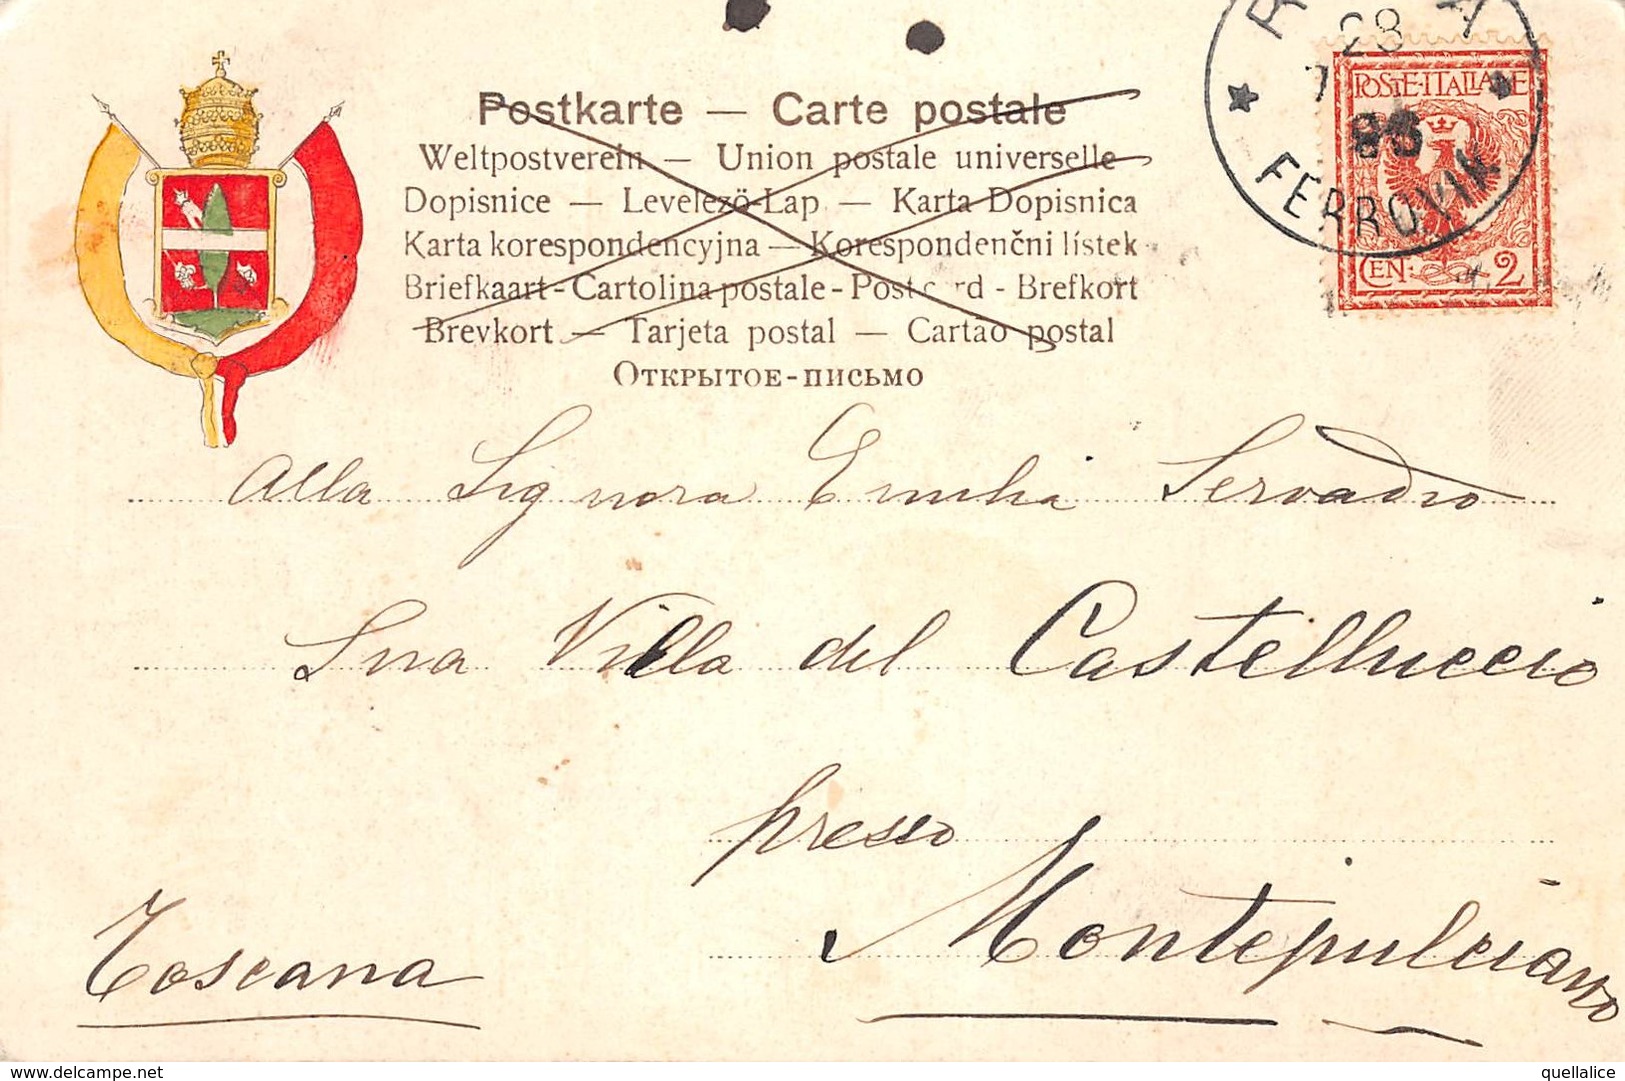 Postkarte — Carte postale
Weltpostverein — Union postale universelle
Dopisnice — Levelező-Lap — Karta Dopisnica
Karta korespondencyjna — Korespondenční lístek
Briefkaart - Cartolina postale - Postcard - Brefkort
Brevkort — Tarjeta postal — Cartão postal
Открытое-письмо
28
POSTE·ITALIANE
FERROVIA
CEN: 2
Alla Signora Emilia Servadio
Sua Villa del Castelluccio
presso
Montepulciano
Toscana
www.delcampe.net
quellalice